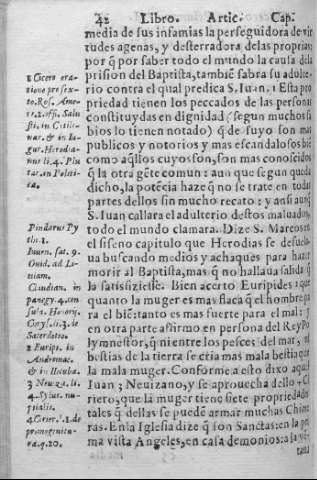 42 Libro. Artic. Cap.
media de sus infamias la perseguidora de vir
tudes agenas, y desterradora de las proprias;
por q̃ por saber todo el mundo la causa de la
prision del Baptista, tambiẽ sabra su adulte-
rio contra el qual predica S. Iuan. 1 Esta pro
priedad tienen los peccados de las personas
constituydas en dignidad (segun muchos sa
bios lo tienen notado) q̃ de suyo son mas
publicos y notorios y mas escandalosos biẽ
como aq̃llos cuyos son, son mas conocidos
q̃ la otra gẽte comun: aun que segun queda
dicho, la potẽcia haze q̃ no se trate en todas
partes dellos sin mucho recato: y ansi aunq̃
S. Iuan callara el adulterio destos maluados,
todo el mundo clamara. Dize S. Marcos en
el sifeno capitulo que Herodias se desuela-
ua buscando medios y achaques para hazer
morir al Baptista, mas q̃ no hallaua salida q̃
la satisfiziesse. Bien acerto Euripides 2 que
quanto la muger es mas flaca q̃ el hombre pa
ra el biẽ: tanto es mas fuerte para el mal: y
en otra parte affirmo en persona del Rey Po
lymnestor, q̃ ni entre los pesces del mar, ni
bestias de la tierra se cria mas mala bestia que
la mala muger. Conforme a esto dixo aquel
Iuan 3 Neuizano, y se aprouecha dello 4 Ci
riero, que la muger tiene siete propriedades
tales q̃ dellas se puedẽ armar muchas Chime
ras. En la Iglesia dize q̃ son Sanctas: en la pri
ma vista Angeles, en casa demonios: a la vẽ
tana
1 Cicero ora-
tione pro sex-
to. Ros. Ame-
ri. 2. offi. Salu
sti. in Catili-
nar. & in Iu-
gur. Herodia-
nus li. 4. Plu
tar. in Politi-
ca.
Pindarus Py
th. 1.
Iuuen. sat. 9.
Ouid. ad Li-
uiam.
Claudian. in
panegy. 4. con
sula. Honorij.
Chrys. li. 3. de
Sacerdotio.
2 Eurip. in
Andromac.
& in Hecuba.
3 Neuiza. li.
4. Sylua. nu-
ptialis.
4 Cirier. l. 1. de
primogenitu-
ra. q. 20.